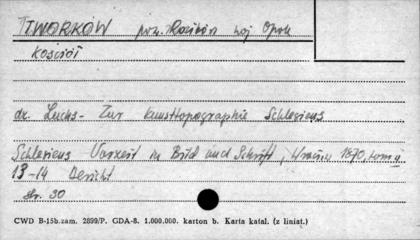 TWORKÓW pow. Racibórz woj Opole
Kościół
dr. Luchs - Zur Kunsttopographie Schlesiens
Schlesiens Vorzeit in Bild und Schrift, 1870, tom II
13-14 Bericht
str. 30
CWD B-15b.zam. 2899/P. GDA-8. 1.000.000. karton b. Karta katal. (z liniat.)